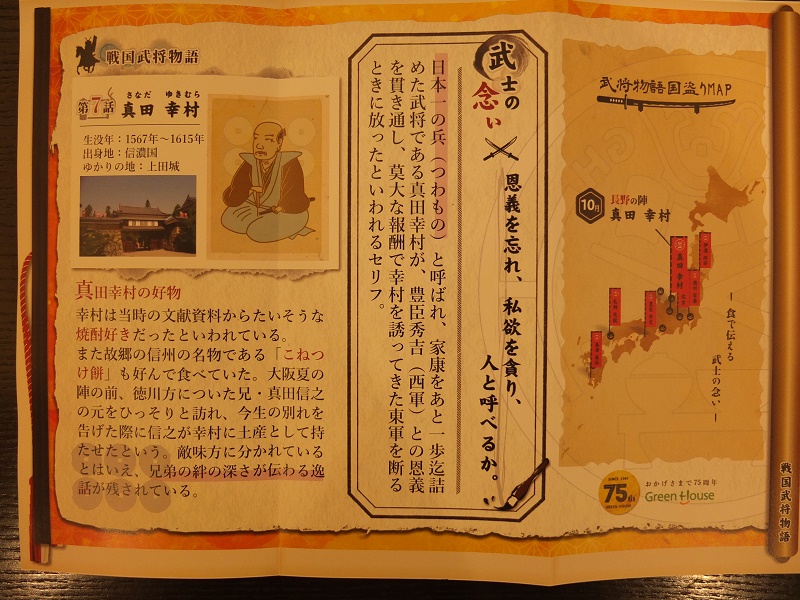 戦国武将物語
第7話
さなだ ゆきむら
真田 幸村
生没年：1567年～1615年
出身地：信濃国
ゆかりの地：上田城
真田幸村の好物
幸村は当時の文献資料からたいそうな
焼酎好きだったといわれている。
また故郷の信州の名物である「こねつ
け餅」も好んで食べていた。大阪夏の
陣の前、徳川方についた兄・真田信之
の元をひっそりと訪れ、今生の別れを
告げた際に信之が幸村に土産として持
たせたという。敵味方に分かれている
とはいえ、兄弟の絆の深さが伝わる逸
話が残されている。
武士の念い
恩義を忘れ、私欲を貪り、
人と呼べるか。
日本一の兵（つわもの）と呼ばれ、家康をあと一歩迄詰
めた武将である真田幸村が、豊臣秀吉（西軍）との恩義
を貫き通し、莫大な報酬で幸村を誘ってきた東軍を断る
ときに放ったといわれるセリフ。
武将物語国盗りMAP
10月
長野の陣
真田 幸村
真田 幸村
－食で伝える
武士の念い－
75th
おかげさまで75周年
Green House
戦国武将物語